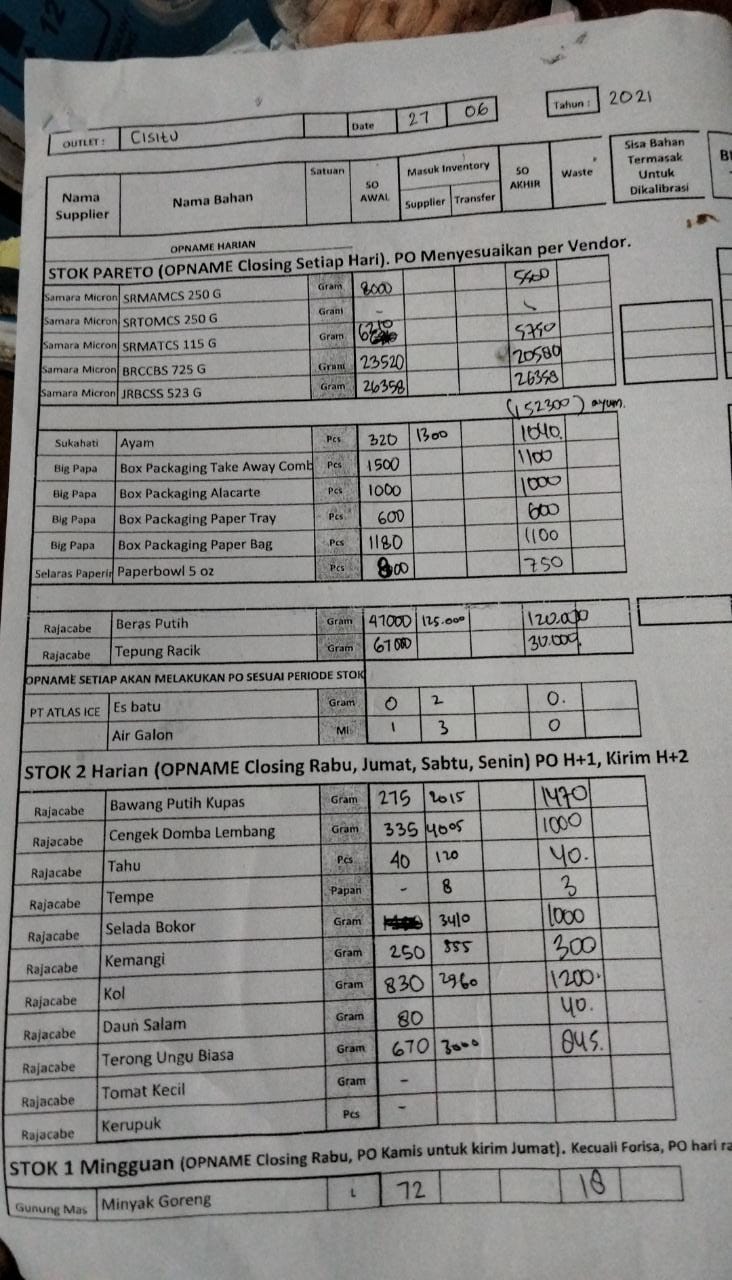 OUTLET : CISITU Date 27 06 Tahun : 2021
Nama Supplier Nama Bahan Satuan SO AWAL Masuk Inventory Supplier Transfer SO AKHIR Waste Sisa Bahan Termasak Untuk Dikalibrasi
OPNAME HARIAN
STOK PARETO (OPNAME Closing Setiap Hari). PO Menyesuaikan per Vendor.
Samara Micron SRMAMCS 250 G Gram 8000
Samara Micron SRTOMCS 250 G Gram -
Samara Micron SRMATCS 115 G Gram 5750
Samara Micron BRCCBS 725 G Gram 23520 20580
Samara Micron JRBCSS 523 G Gram 26358 26358
(152300) ayam.
Sukahati Ayam Pcs 320 1300 1040.
Big Papa Box Packaging Take Away Comb Pcs 1500 1100
Big Papa Box Packaging Alacarte Pcs 1000 1000
Big Papa Box Packaging Paper Tray Pcs 600 600
Big Papa Box Packaging Paper Bag Pcs 1180 1100
Selaras Paperin Paperbowl 5 oz Pcs 800 750
Rajacabe Beras Putih Gram 47000 125.000 120.000
Rajacabe Tepung Racik Gram 67000 30.000
OPNAME SETIAP AKAN MELAKUKAN PO SESUAI PERIODE STOK
PT ATLAS ICE Es batu Gram 0 2 0.
Air Galon Ml 1 3 0
STOK 2 Harian (OPNAME Closing Rabu, Jumat, Sabtu, Senin) PO H+1, Kirim H+2
Rajacabe Bawang Putih Kupas Gram 275 2015 1470
Rajacabe Cengek Domba Lembang Gram 335 4005 1000
Rajacabe Tahu Pcs 40 120 40.
Rajacabe Tempe Papan - 8 3
Rajacabe Selada Bokor Gram 3410 1000
Rajacabe Kemangi Gram 250 555 300
Rajacabe Kol Gram 830 2960 1200.
Rajacabe Daun Salam Gram 80 40.
Rajacabe Terong Ungu Biasa Gram 670 3000 845.
Rajacabe Tomat Kecil Gram -
Rajacabe Kerupuk Pcs -
STOK 1 Mingguan (OPNAME Closing Rabu, PO Kamis untuk kirim Jumat). Kecuali Forisa, PO hari ra
Gunung Mas Minyak Goreng L 72 18